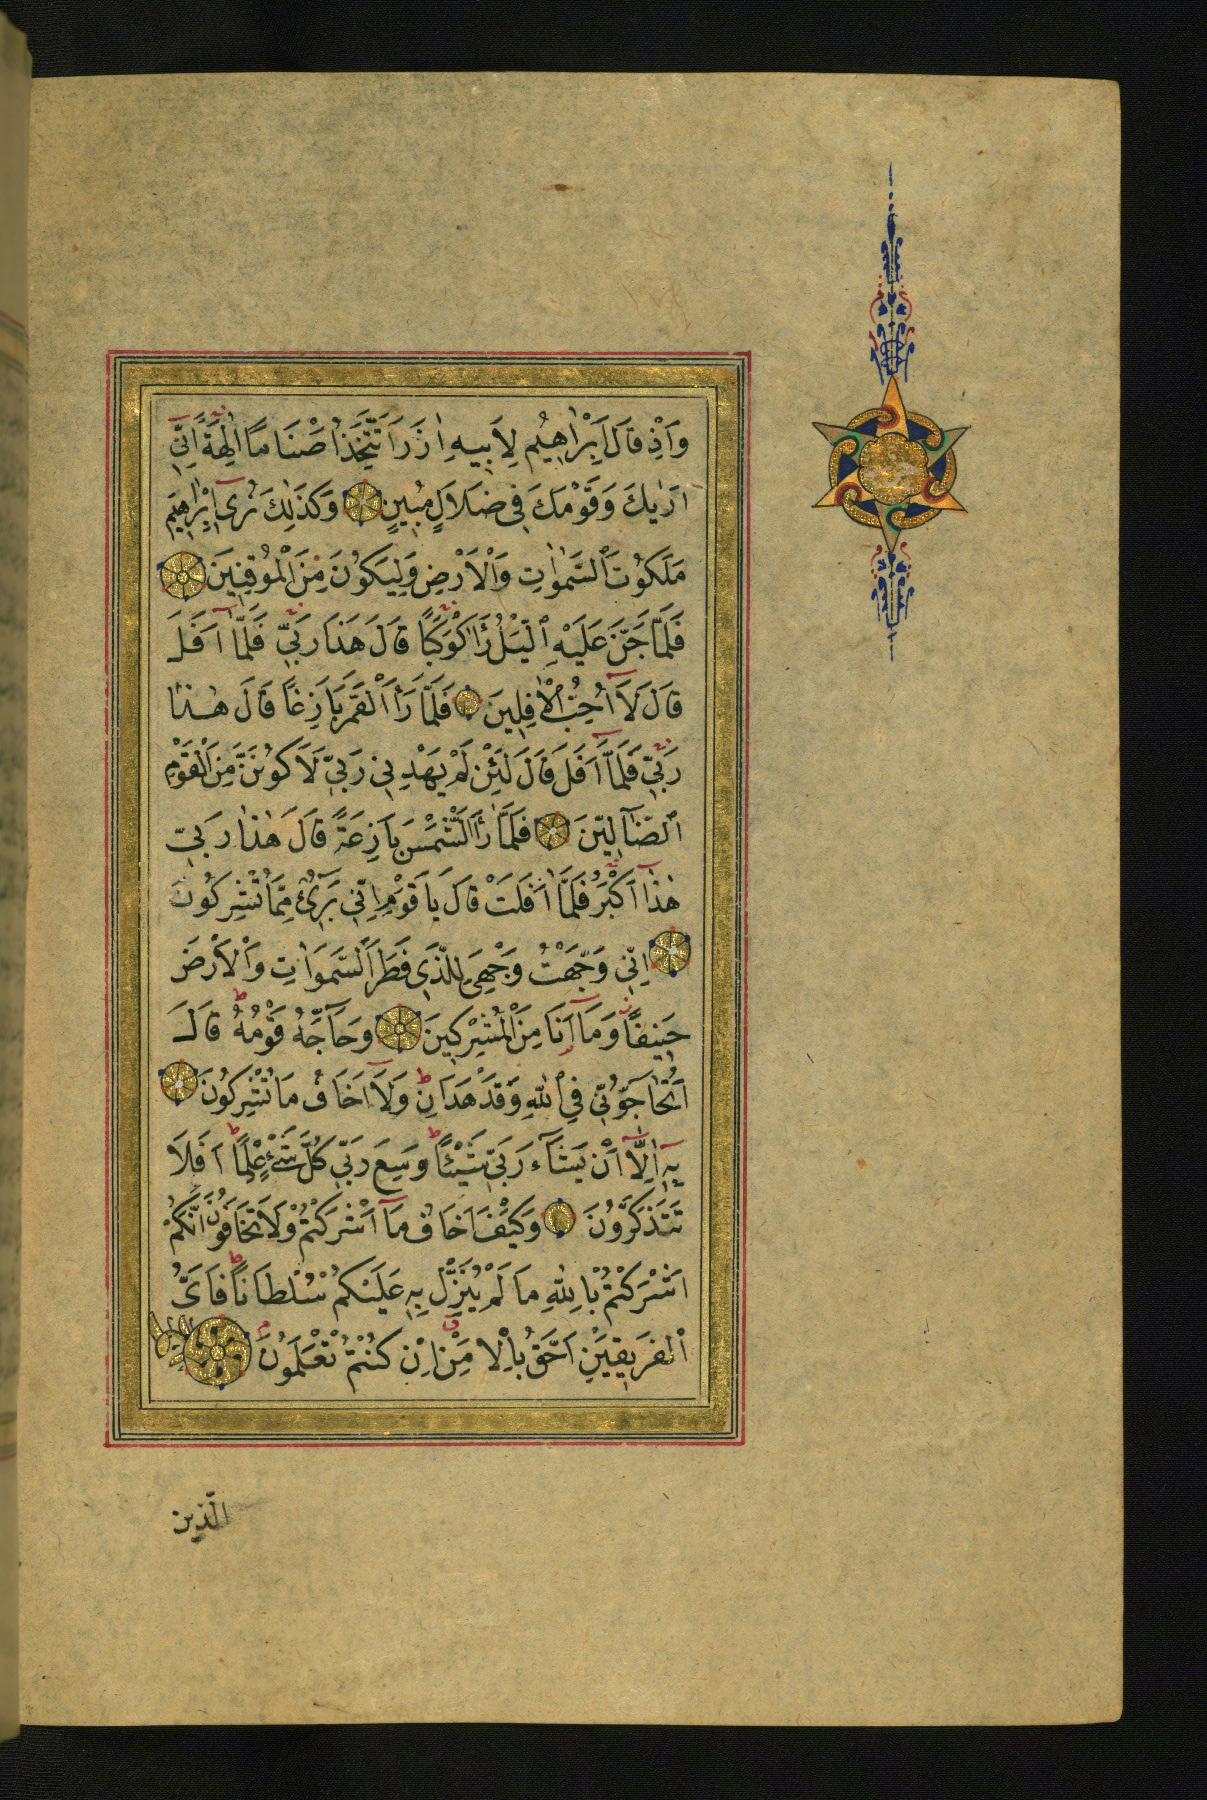 وَاِذْ قَالَ اِبْرٰاهِيمُ لِاَبِيهِ اٰزَرَ اَتَتَّخِذُ اَصْنَامًا اٰلِهَةً اِنّٖي
اَرٰيكَ وَقَوْمَكَ فِي ضَلَالٍ مُبِينٍ وَكَذٰلِكَ نُرِي اِبْرٰهِيمَ
مَلَكُوتَ السَّمٰوٰاتِ وَالْاَرْضِ وَلِيَكُونَ مِنَ الْمُوقِنِينَ
فَلَمَّا جَنَّ عَلَيْهِ الَّيْلُ رَاٰ كَوْكَبًا قَالَ هَذَا رَبِّي فَلَمَّا اَفَلَ
قَالَ لَا اُحِبُّ الْاٰفِلِينَ فَلَمَّا رَاَ الْقَمَرَ بَازِغًا قَالَ هٰذَا
رَبِّي فَلَمَّا اَفَلَ قَالَ لَئِنْ لَمْ يَهْدِنِي رَبِّي لَاَكُونَنَّ مِنَ الْقَوْمِ
الضَّآلِّينَ فَلَمَّا رَاَ الشَّمْسَ بَازِغَةً قَالَ هٰذَا رَبِّي
هٰذَا اَكْبَرُ فَلَمَّا اَفَلَتْ قَالَ يَا قَوْمِ اِنِّي بَرِيٓءٌ مِمَّا تُشْرِكُونَ
اِنِّي وَجَّهْتُ وَجْهِيَ لِلَّذِي فَطَرَ السَّمَوَاتِ وَالْاَرْضَ
حَنِيفًا وَمَآ اَنَا مِنَ الْمُشْرِكِينَ وَحَآجَّهُ قَوْمُهُ قَالَ
اَتُحَآجُّوٓنِّي فِي اللّٰهِ وَقَدْ هَدَانِ وَلَآ اَخَافُ مَا تُشْرِكُونَ
بِهِ اِلَّآ اَنْ يَشَآءَ رَبِّي شَيْئًا وَسِعَ رَبِّي كُلَّ شَيْءٍ عِلْمًا اَفَلَا
تَتَذَكَّرُونَ وَكَيْفَ اَخَافُ مَآ اَشْرَكْتُمْ وَلَا تَخَافُونَ اَنَّكُمْ
اَشْرَكْتُمْ بِاللّٰهِ مَا لَمْ يُنَزِّلْ بِهِ عَلَيْكُمْ سُلْطَانًا فَاَيُّ
الْفَرِيقَيْنِ اَحَقُّ بِالْاَمْنِ اِنْ كُنْتُمْ تَعْلَمُونَ
الَّذِينَ